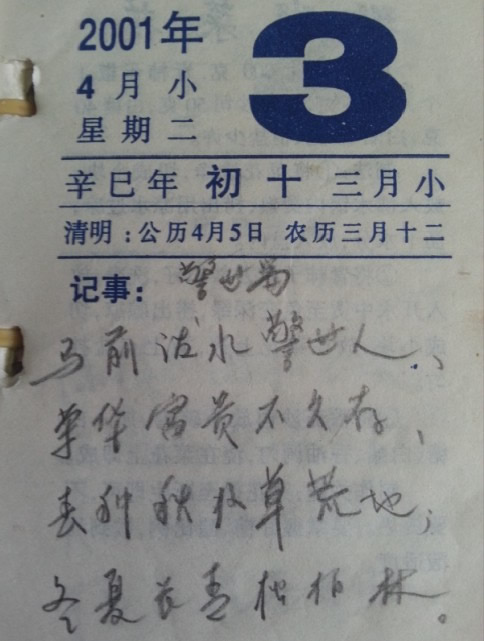 2001年
4月小
星期二
3
辛巳年 初十 三月小
清明:公历4月5日 农历三月十二
记事: 警世
马前泼水警世人、
荣华富贵不久存、
春种秋收草荒地;
冬夏长青松柏林。